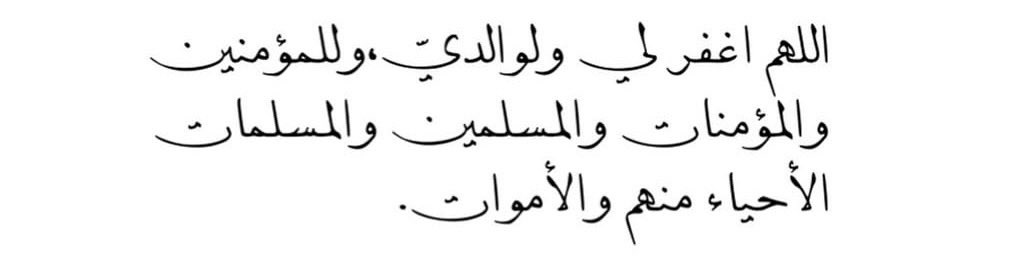 اللهم اغفر لي ولوالديّ،وللمؤمنين
والمؤمنات والمسلمين والمسلمات
الأحياء منهم والأموات.